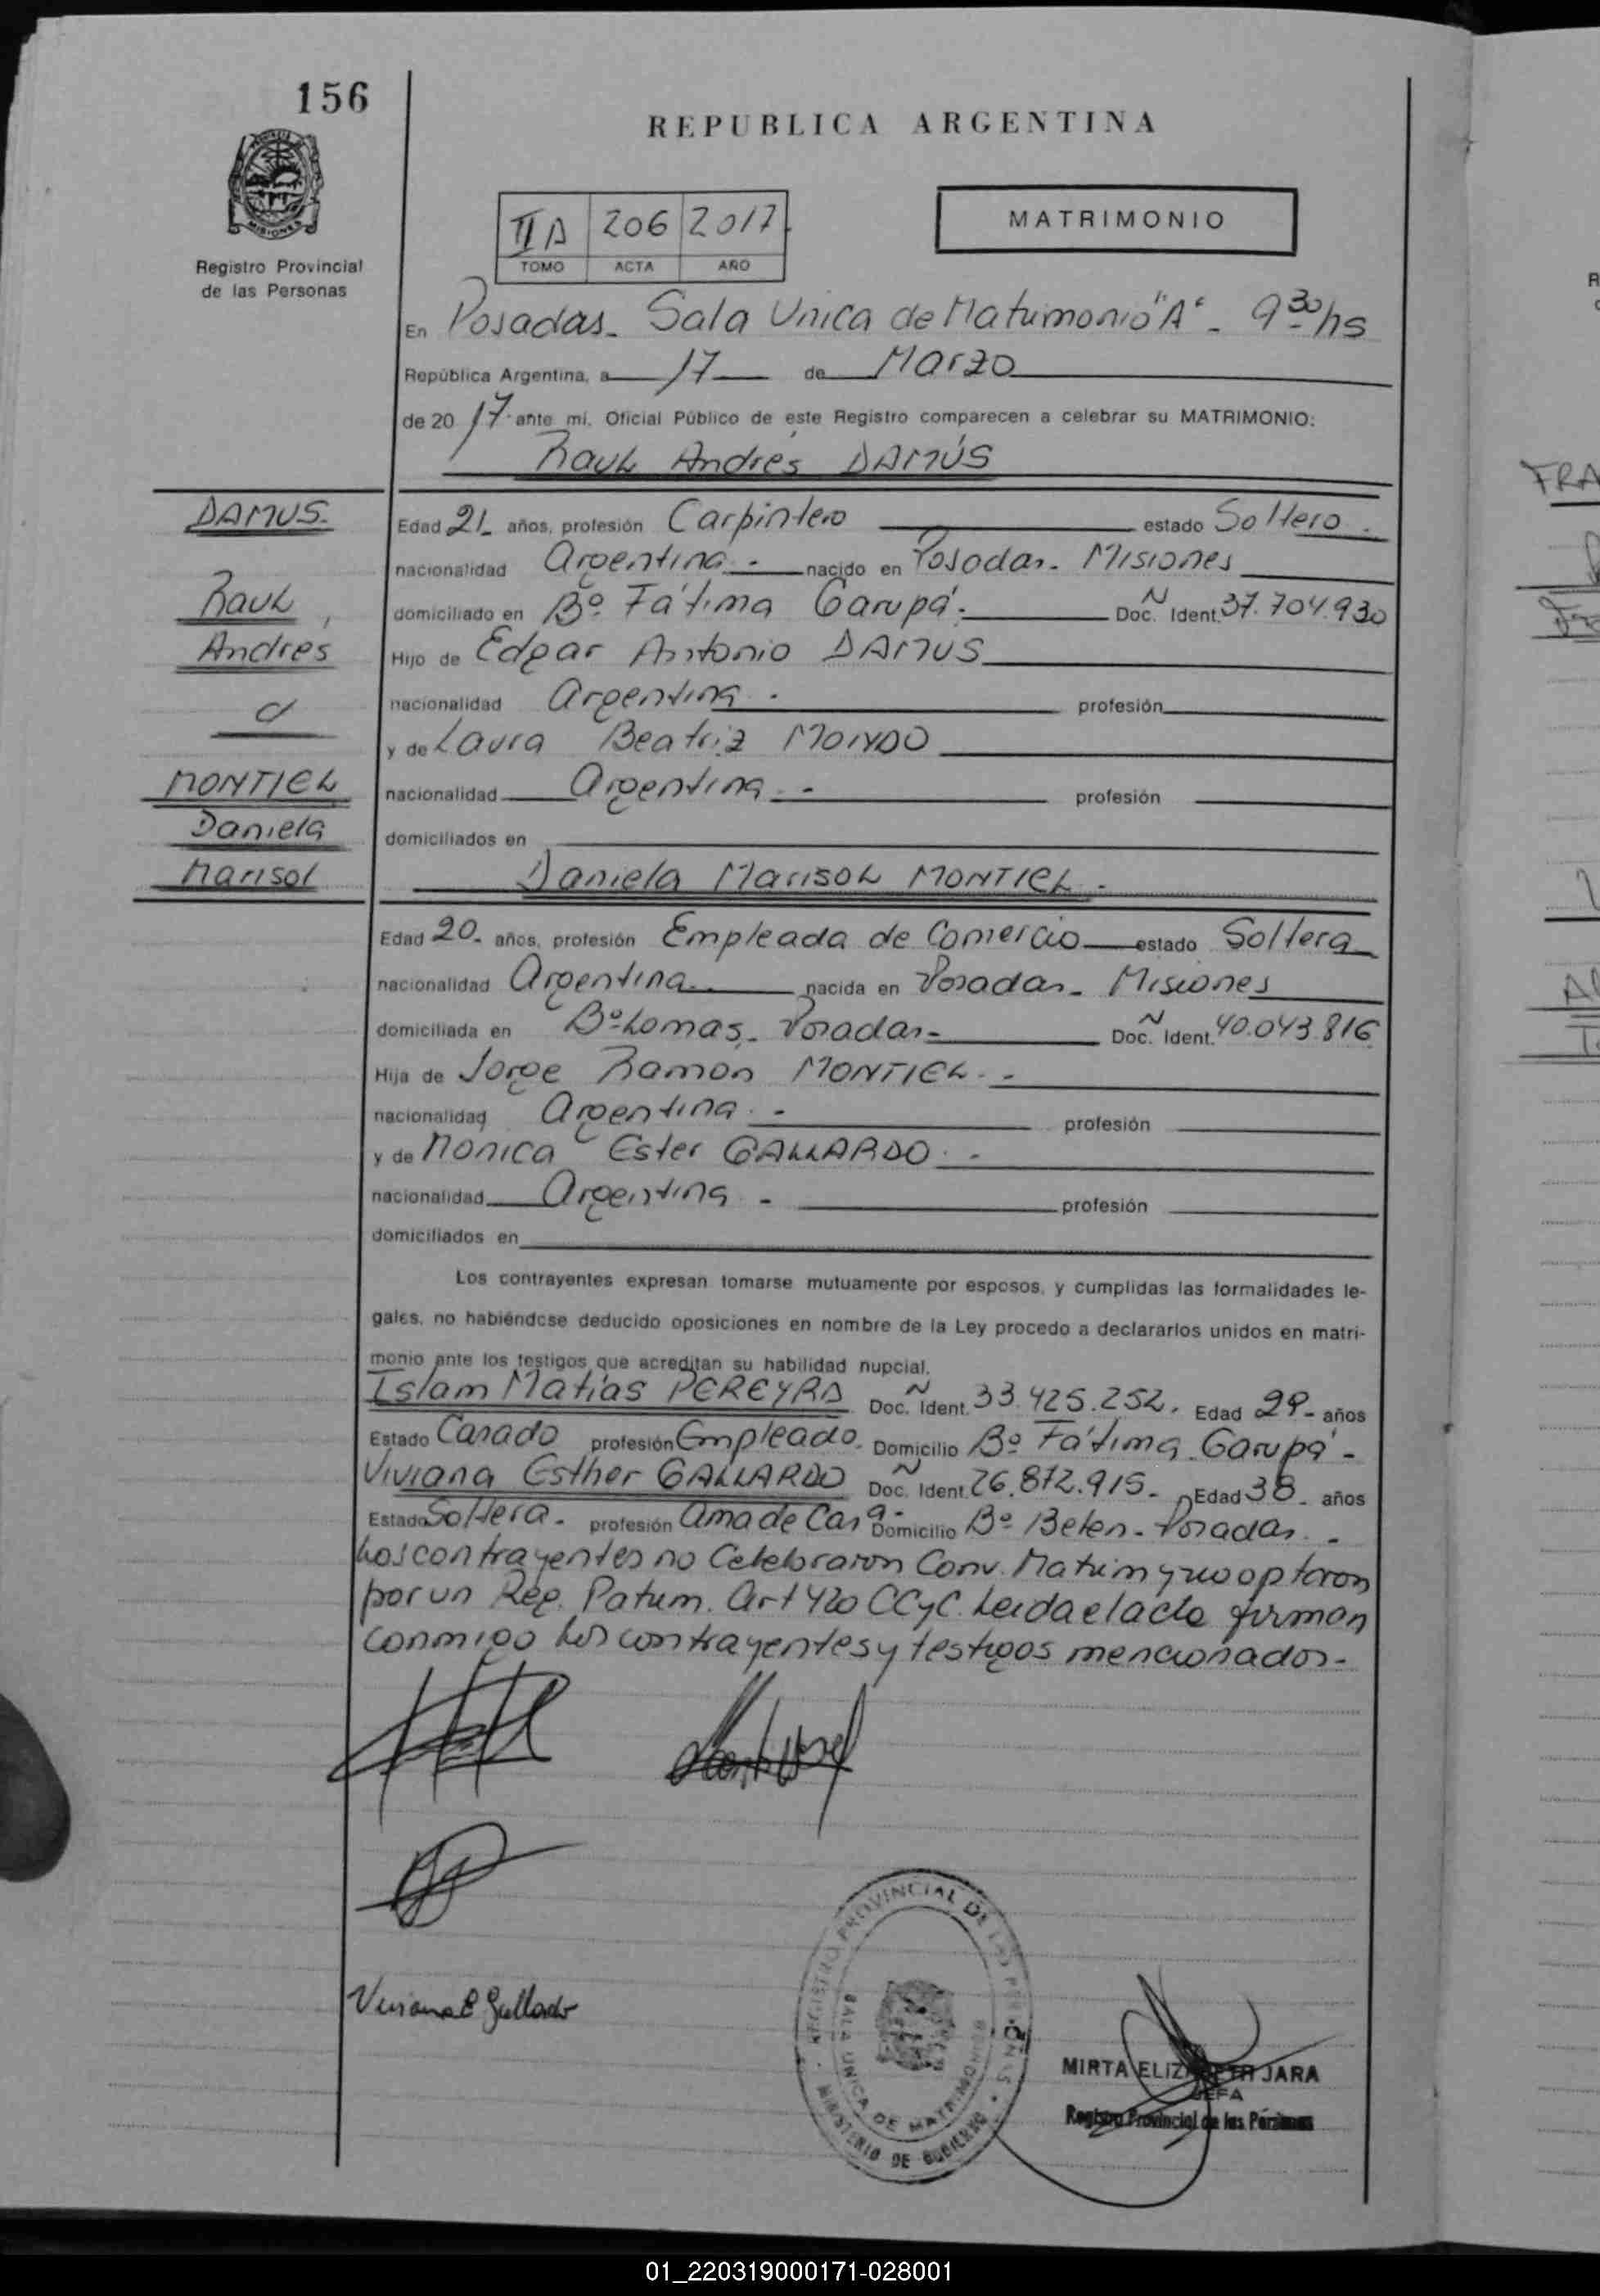 156
REPUBLICA ARGENTINA
MISIONES
Registro Provincial
de las Personas
IIA 206 2017
TOMO ACTA AÑO
MATRIMONIO
En Posadas- Sala Unica de Matrimonio "A"- 9 30 hs
República Argentina, a 17 de Marzo
de 2017 ante mí, Oficial Público de este Registro comparecen a celebrar su MATRIMONIO:
Raul Andrés DAMÚS
DAMUS.
Raul
Andres
c/
MONTIEL
Daniela
Marisol
Edad 21- años, profesión Carpintero estado Soltero.
nacionalidad Argentina- nacido en Posadas- Misiones
domiciliado en Bº Fátima Garupá. Doc. Ñ Ident. 37.704.930
Hijo de Edgar Antonio DAMUS
nacionalidad Argentina. profesión
y de Laura Beatriz
nacionalidad Argentina.- profesión
domiciliados en
Daniela Marisol MONTIEL-
Edad 20- años, profesión Empleada de Comercio estado Soltera
nacionalidad Argentina. nacida en Posadas- Misiones
domiciliada en Bº Lomas- Posadas- Doc. Ñ Ident. 40.043.816
Hija de Jorge Ramon MONTIEL.-
nacionalidad Argentina.- profesión
y de Monica Ester GALLARDO.-
nacionalidad Argentina- profesión
domiciliados en
Los contrayentes expresan tomarse mutuamente por esposos, y cumplidas las formalidades le-
gales, no habiéndose deducido oposiciones en nombre de la Ley procedo a declararlos unidos en matri-
monio ante los testigos que acreditan su habilidad nupcial.
Islam Matías PEREYRA Doc. Ñ Ident. 33.425.252. Edad 29- años
Estado Casado profesión Empleado. Domicilio Bº Fátima. Garupá-
Viviana Esther GALLARDO Doc. Ñ Ident. 26.872.915- Edad 38- años
Estado Soltera- profesión Ama de Casa- Domicilio Bº Belen- Posadas.-
Los contrayentes no Celebraron Conv. Matrim y no optaron
por un Reg. Patrim. Art 420 CCyC. Leida el acta firman
conmigo los contrayentes y testigos mencionados-
Viviana E Gallardo
REGISTRO PROVINCIAL DE LAS PERSONAS
SALA UNICA DE MATRIMONIO
MINISTERIO DE GOBIERNO
MIRTA ELIZABETH JARA
JEFA
Registro Provincial de las Personas
01_220319000171-028001